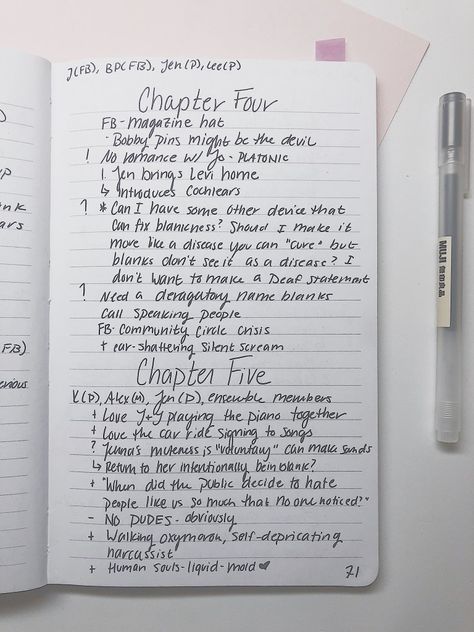 J(FB), BP(FB), Jen(P), Lee(P)
Chapter Four
FB-magazine hat
- Bobby pins might be the devil
! No romance w/ Jo - PLATONIC
1. Jen brings Levi home
↳ Introduces Cochlears
? * Can I have some other device that
can fix blankness? Should I make it
more like a disease you can "cure" but
blanks don't see it as a disease? I
don't want to make a Deaf statement
? Need a deragatory name blanks
call speaking people
FB-community circle crisis
+ ear-shattering silent scream
Chapter Five
K(D), Alex(M), Jen(D), ensemble members
+ Love J+J playing the piano together
+ Love the car ride signing to songs
? Jenna's muteness is "voluntary" can make sounds
↳ Return to her intentionally being blank?
+ "When did the public decide to hate
people like us so much that no one noticed?"
- NO DUDES - obviously
+ Walking oxymoron, self-depricating
narcassist
+ Human souls-liquid-mold ♥
71
FB)
MUJI 無印良品